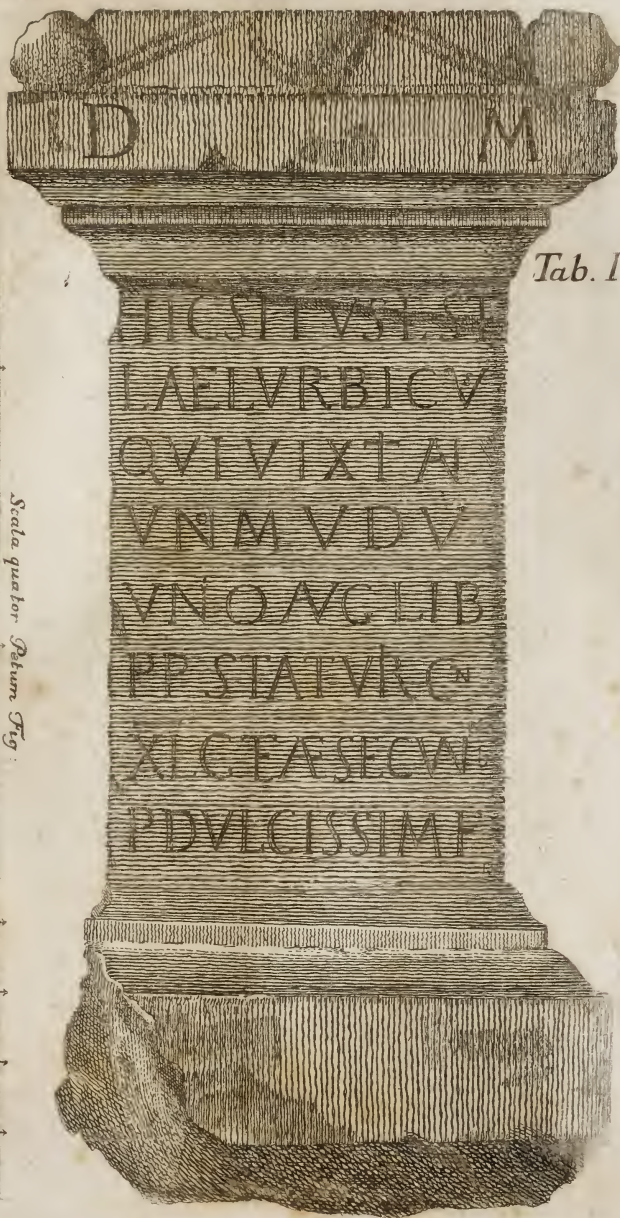 D M
Tab. I
HIC SITVS EST
L AEL VRBICV
QVI VIXT AN
VN M V D V
VNO AVG LIB
PP STATVR C N
DVLCISSIM F
Scala quatuor Petum Fig: